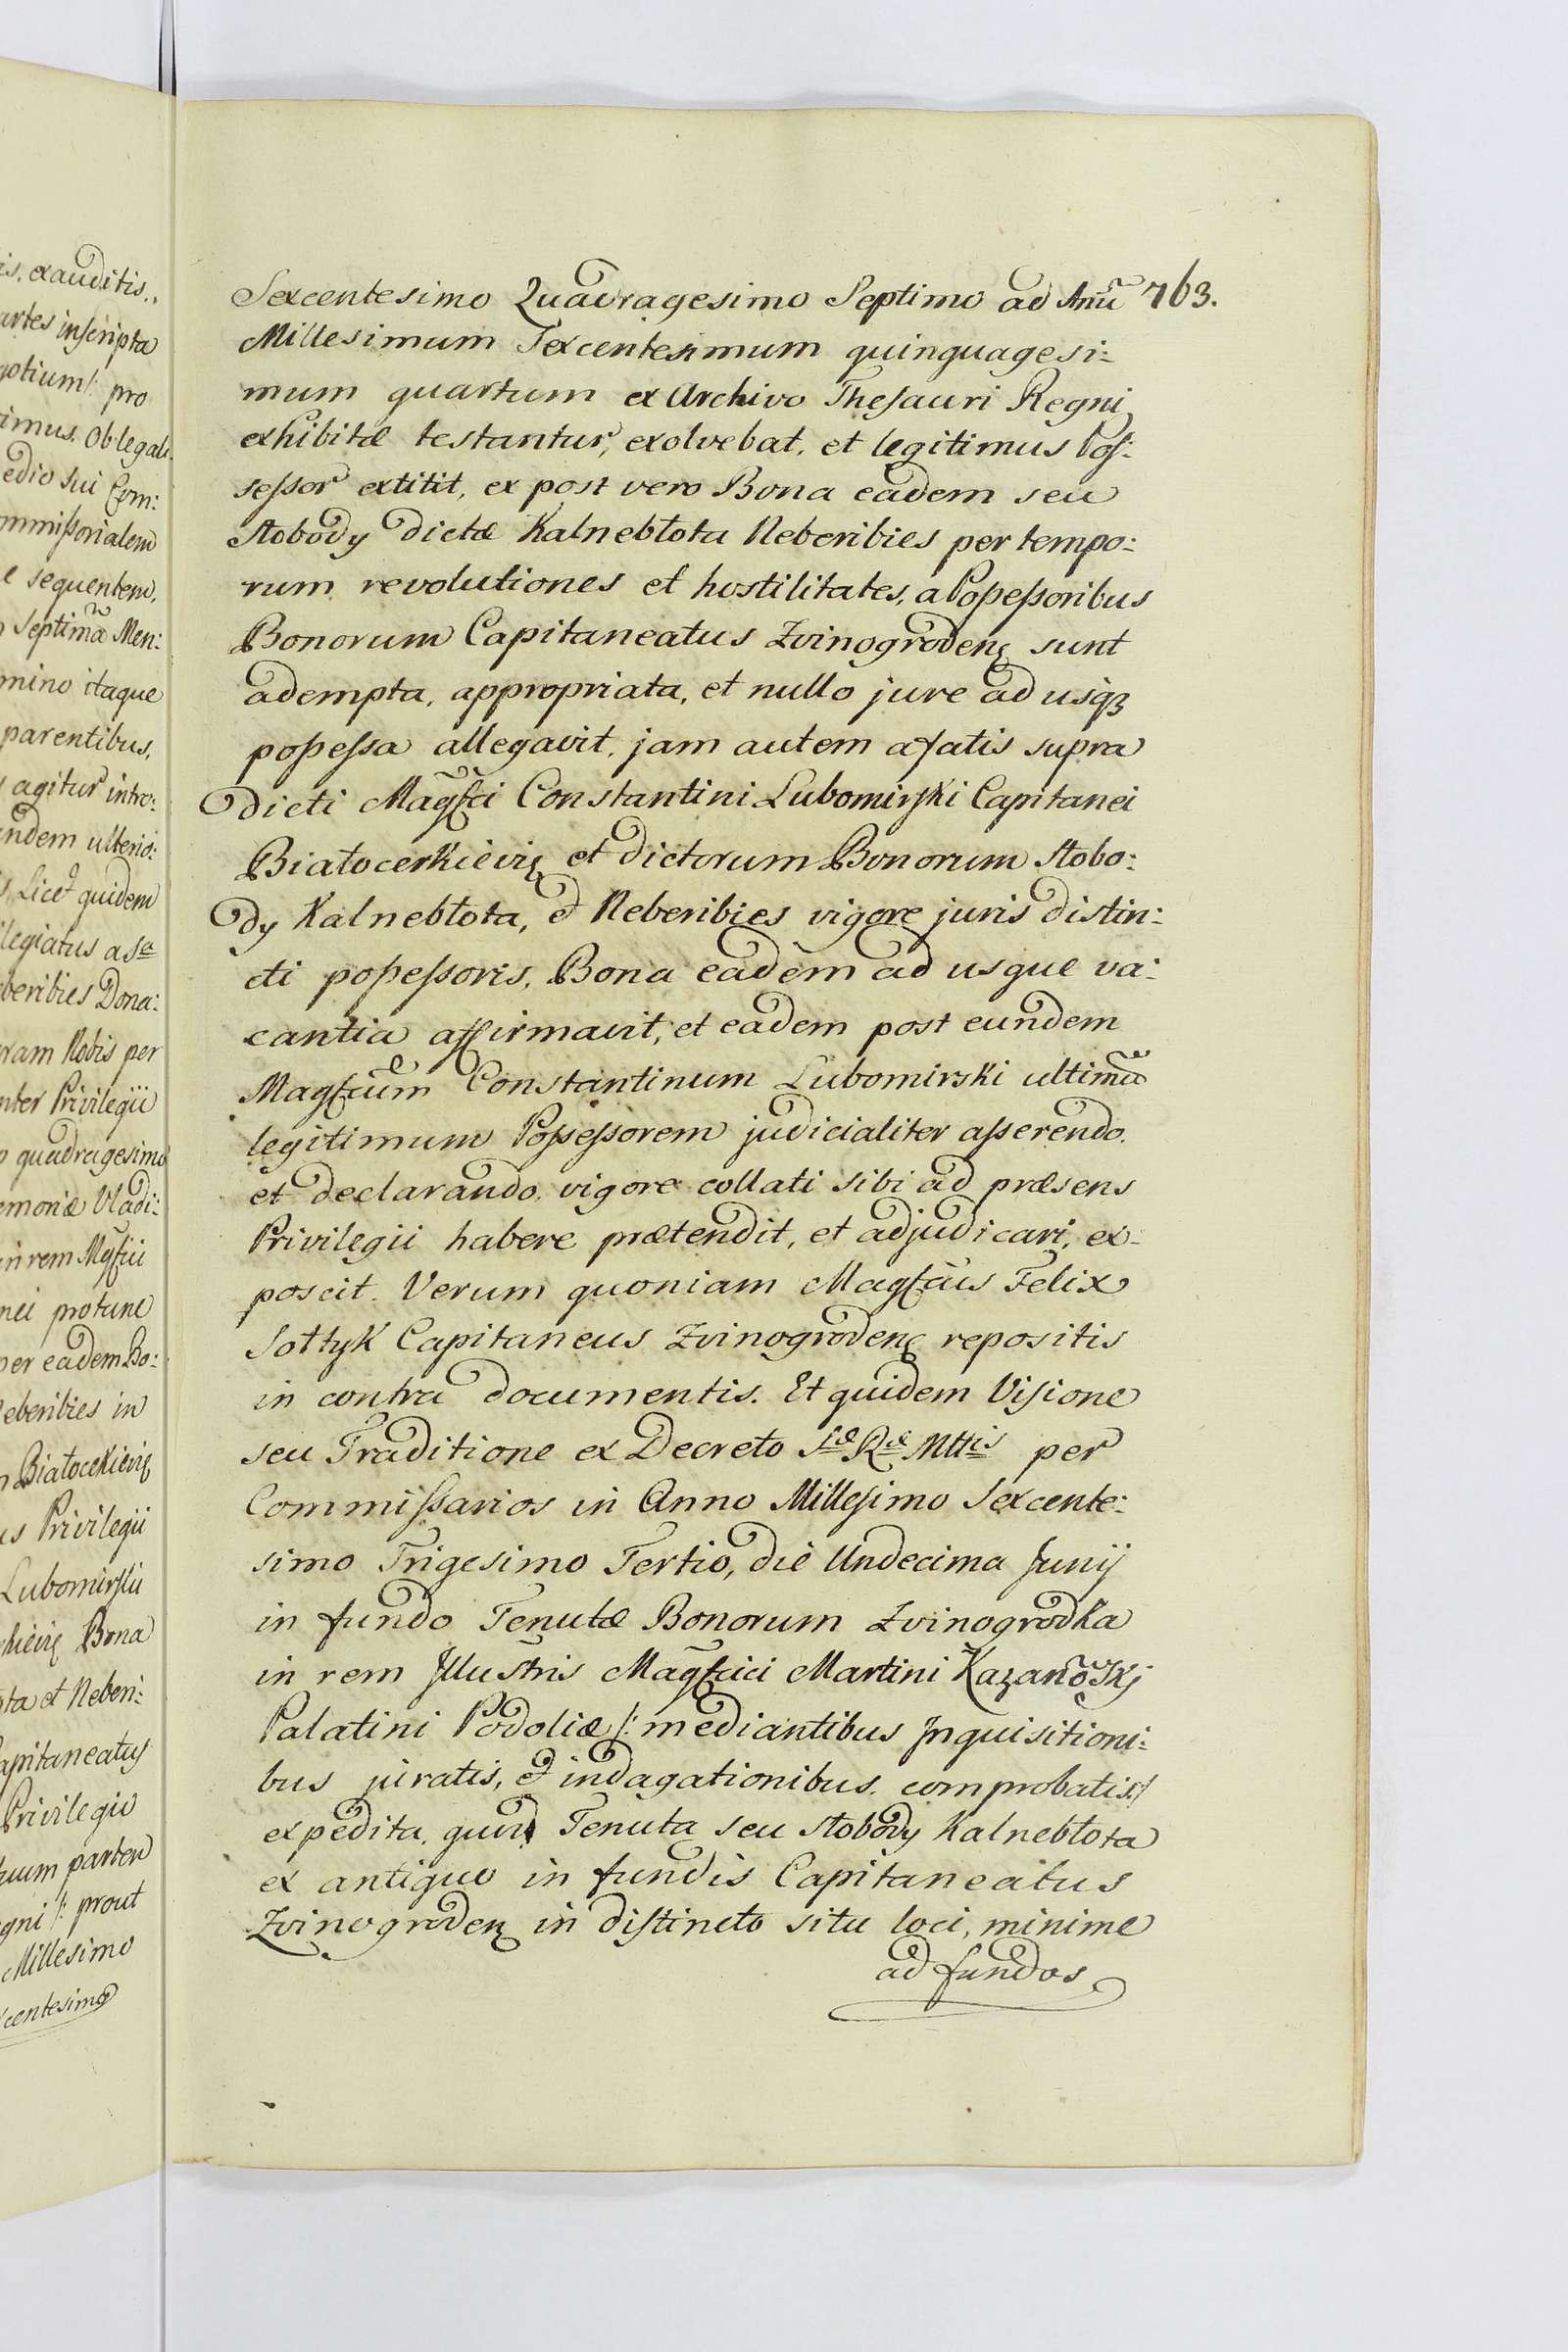 is. exauditis.
artes inscripta
gotium /: pro
imus. Oblegali
edio sui Com:
mmissorialem
e sequentem,
Septimã Men:
mino itaque
parentibus,
agitur intro:
ndem ulterio:
Licet quidem
legiatus a Sa
beribies Dona:
ram Nobis per
nter Privilegii
quadragesimo
emoriæ Vladi:
in rem Mgfcii
nei protunc
per eadem Bo:
eberibies in
Białocekievię
us Privilegii
Lubomirski
kievię Bona
ota et Neberi:
apitaneatus
Privilegio
quum partem
egni /: prout
Millesimo
centesimo
Sexcentesimo Quadragesimo Septimo ad Anũ 763.
Millesimum Sexcentesimum quinquagesi:
mum quartum ex Archivo Thesauri Regni
exhibitæ testantur, exolvebat, et legitimus Pos:
sessor extitit, ex post vero Bona eadem seu
słobody dictæ Kalnebłota Neberibies per tempo:
rum revolutiones et hostilitates, a Possessoribus
Bonorum Capitaneatus Zvinogrodenę sunt
adempta, appropriata, et nullo jure ad usq3
possessa allegavit, jam autem a fatis supra
dicti Magfci Constantini Lubomirski Capitanei
Białocerkievię et dictorum Bonorum słobo:
dy Kalnebłota, et Neberibies vigore juris distin:
cti possessoris, Bona eadem ad usque va:
cantia affirmavit, et eadem post eundem
Magfcum Constantinum Lubomirski ultimũ
legitimum Possessorem judicialiter asserendo.
et declarando. vigore collati sibi ad præsens
Privilegii habere prætendit, et adjudicari, ex:
poscit. Verum quoniam Magfcus Felix
Sołtyk Capitaneus Zvinogrodenę repositis
in contra documentis. Et quidem Visione
seu Traditione ex Decreto Sæ Ræ Mttis per
Commissarios in Anno Millesimo Sexcente:
simo Trigesimo Tertio, die Undecima Junij
in fundo Tenutæ Bonorum Zvinogrodka
in rem Jllustris Magfcici Martini Kazanowskj
Palatini Podoliæ /: mediantibus Jnquisitioni:
bus juratis, et indagationibus. comprobatis :/
expedita, quod Tenuta seu słobody Kalnebłota
ex antiquo in fundis Capitaneatus
Zvinogrodenę in distincto situ loci, minime
ad fundos